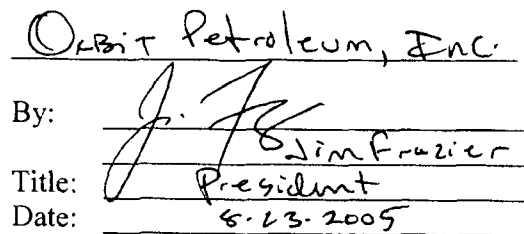 Orbit Petroleum, Inc.
By: J. F
Jim Frazier
Title: President
Date: 8.23.2005